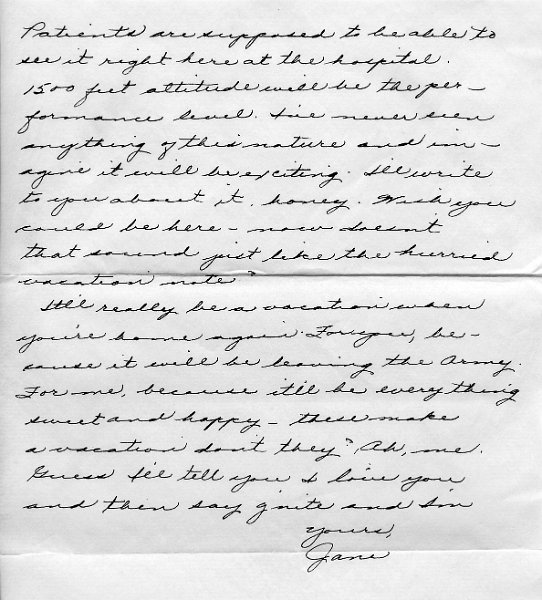 Patients are supposed to be able to
see it right here at the hospital.
1500 feet altitude will be the per-
formance level. I've never seen
anything of this nature and im-
agine it will be exciting. I'll write
to you about it, honey. Wish you
could be here - now doesn't
that sound just like the hurried
vacation note?
It'll really be a vacation when
you're home again. For you, be-
cause it will be leaving the Army.
For me, because it'll be everything
sweet and happy - these make
a vacation don't they? Ah, me.
Guess I'll tell you I love you
and then say g'nite and I'm
yours,
Jane